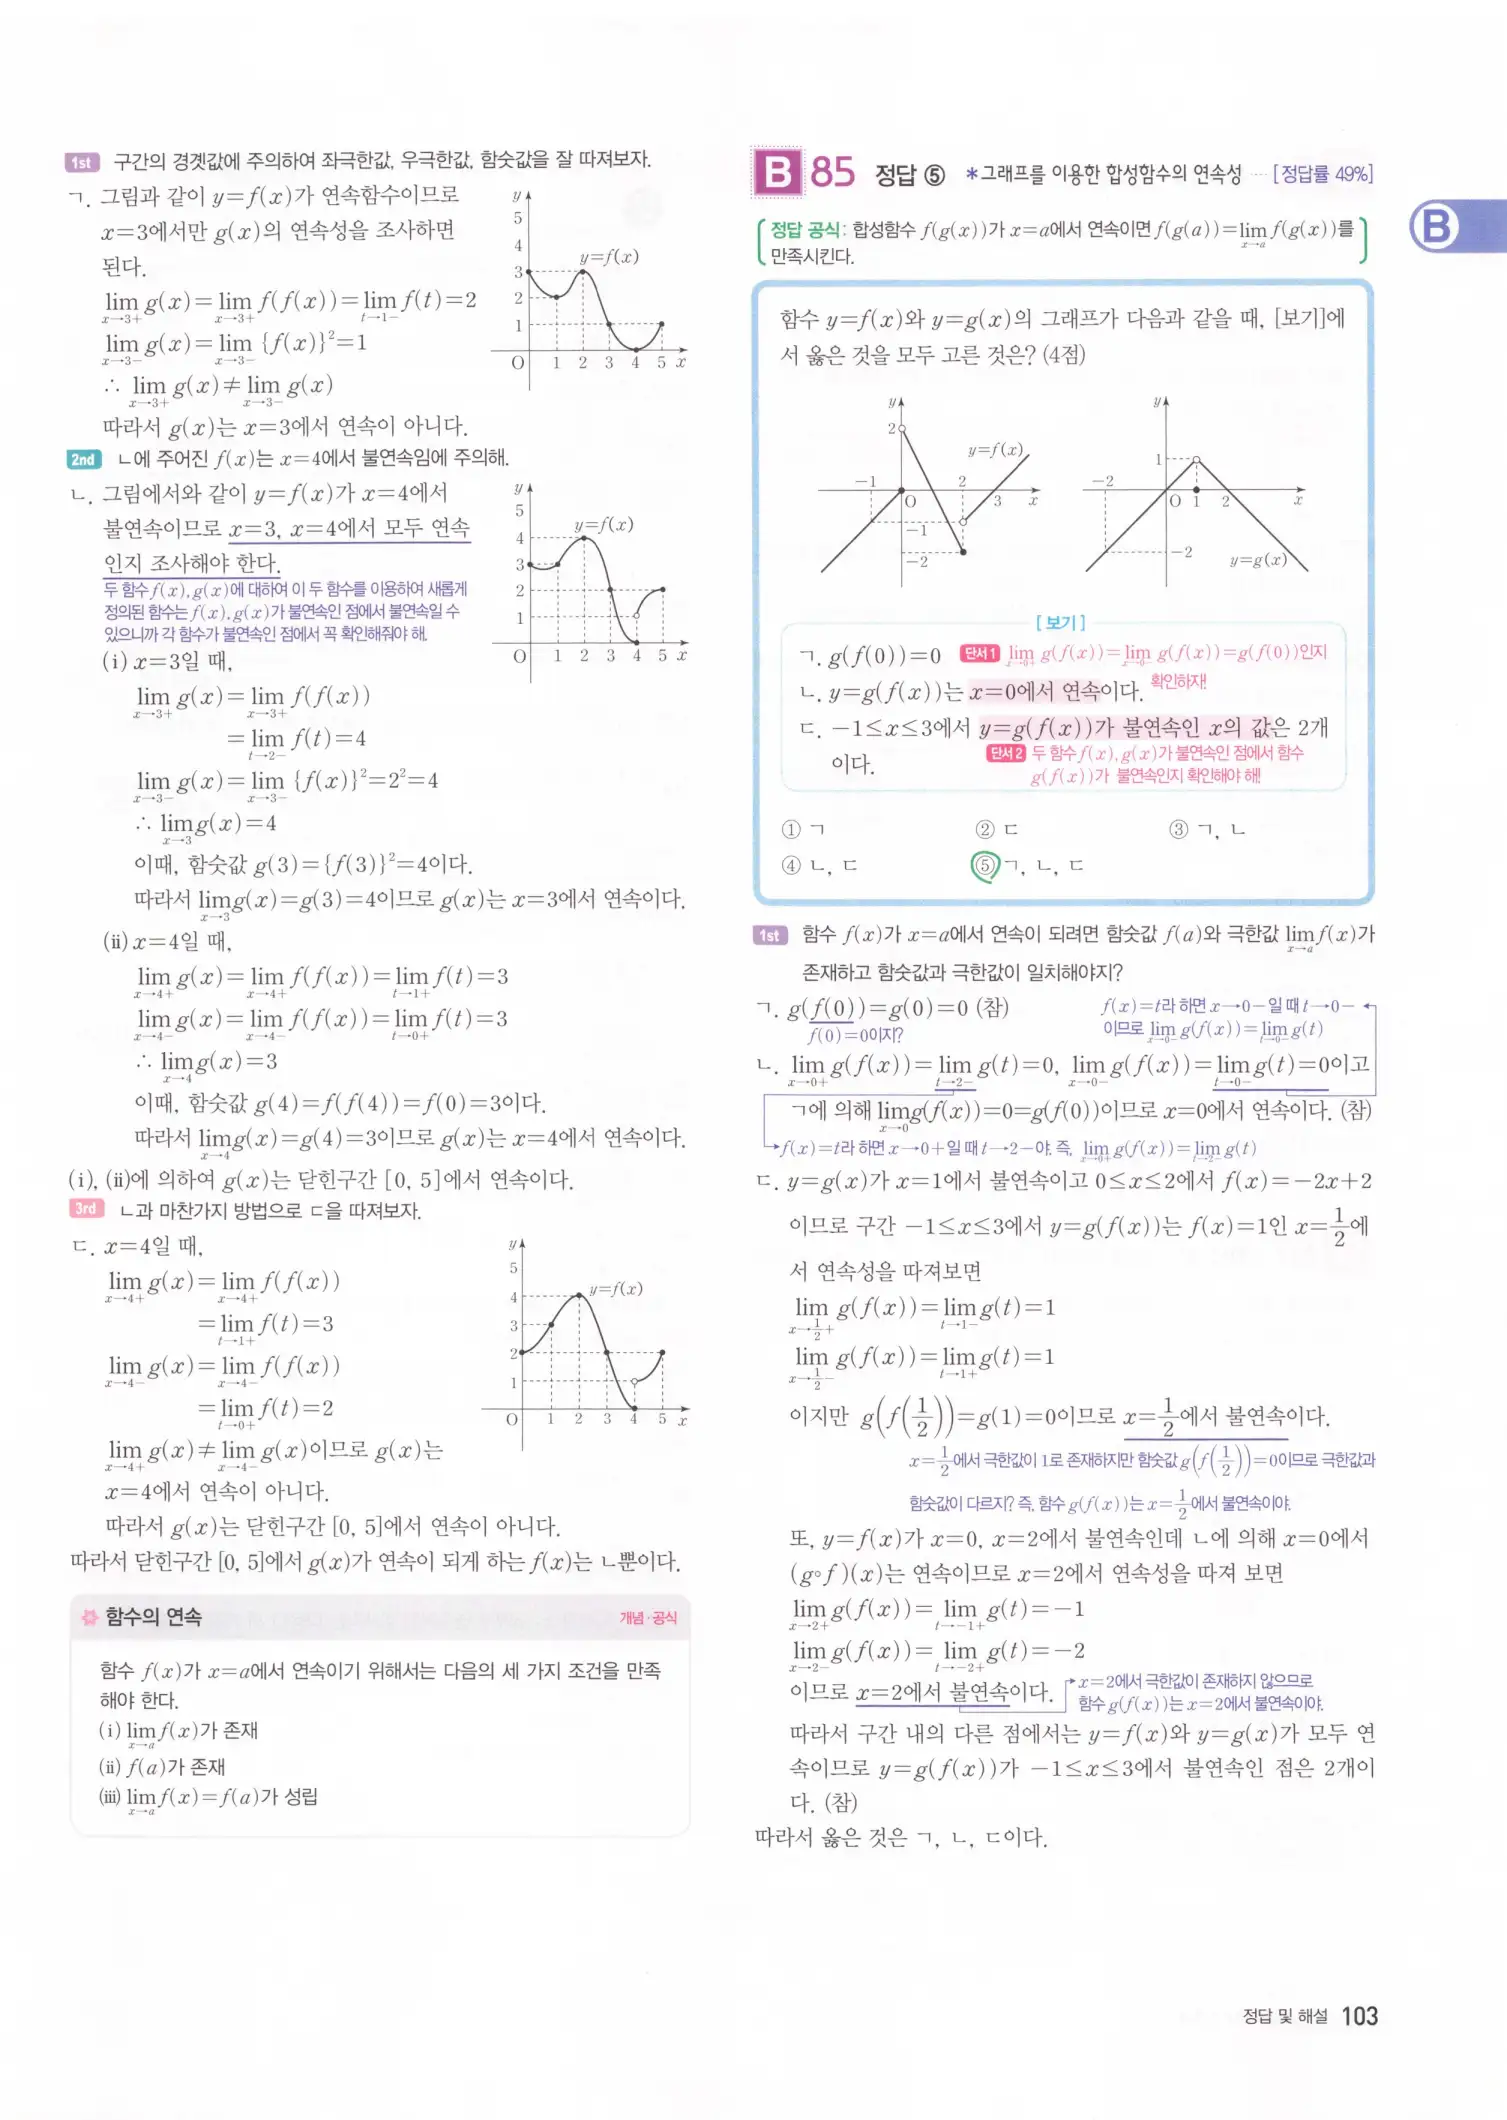 1st 구간의 경곗값에 주의하여 좌극한값, 우극한값, 함숫값을 잘 따져보자.
ㄱ. 그림과 같이 y=f(x)가 연속함수이므로
x=3에서만 g(x)의 연속성을 조사하면
된다.
lim_{x→3+} g(x)=lim_{x→3+} f(f(x))=lim_{t→1-} f(t)=2
lim_{x→3-} g(x)=lim_{x→3-} {f(x)}²=1
∴ lim_{x→3+} g(x)≠lim_{x→3-} g(x)
따라서 g(x)는 x=3에서 연속이 아니다.
y
5
4
3
2
1
y=f(x)
O 1 2 3 4 5 x
2nd ㄴ에 주어진 f(x)는 x=4에서 불연속임에 주의해.
ㄴ. 그림에서와 같이 y=f(x)가 x=4에서
불연속이므로 x=3, x=4에서 모두 연속
인지 조사해야 한다.
두 함수 f(x), g(x)에 대하여 이 두 함수를 이용하여 새롭게
정의된 함수는 f(x), g(x)가 불연속인 점에서 불연속일 수
있으니까 각 함수가 불연속인 점에서 꼭 확인해줘야 해.
y
5
4
3
2
1
y=f(x)
O 1 2 3 4 5 x
(i) x=3일 때,
lim_{x→3+} g(x)=lim_{x→3+} f(f(x))
=lim_{t→2-} f(t)=4
lim_{x→3-} g(x)=lim_{x→3-} {f(x)}²=2²=4
∴ lim_{x→3} g(x)=4
이때, 함숫값 g(3)={f(3)}²=4이다.
따라서 lim_{x→3} g(x)=g(3)=4이므로 g(x)는 x=3에서 연속이다.
(ii) x=4일 때,
lim_{x→4+} g(x)=lim_{x→4+} f(f(x))=lim_{t→1+} f(t)=3
lim_{x→4-} g(x)=lim_{x→4-} f(f(x))=lim_{t→0+} f(t)=3
∴ lim_{x→4} g(x)=3
이때, 함숫값 g(4)=f(f(4))=f(0)=3이다.
따라서 lim_{x→4} g(x)=g(4)=3이므로 g(x)는 x=4에서 연속이다.
(i), (ii)에 의하여 g(x)는 닫힌구간 [0, 5]에서 연속이다.
3rd ㄴ과 마찬가지 방법으로 ㄷ을 따져보자.
ㄷ. x=4일 때,
lim_{x→4+} g(x)=lim_{x→4+} f(f(x))
=lim_{t→1+} f(t)=3
lim_{x→4-} g(x)=lim_{x→4-} f(f(x))
=lim_{t→0+} f(t)=2
lim_{x→4+} g(x)≠lim_{x→4-} g(x)이므로 g(x)는
x=4에서 연속이 아니다.
y
5
4
3
2
1
y=f(x)
O 1 2 3 4 5 x
따라서 g(x)는 닫힌구간 [0, 5]에서 연속이 아니다.
따라서 닫힌구간 [0, 5]에서 g(x)가 연속이 되게 하는 f(x)는 ㄴ뿐이다.
함수의 연속 개념·공식
함수 f(x)가 x=a에서 연속이기 위해서는 다음의 세 가지 조건을 만족
해야 한다.
(i) lim_{x→a} f(x)가 존재
(ii) f(a)가 존재
(iii) lim_{x→a} f(x)=f(a)가 성립
B 85 정답 ⑤ *그래프를 이용한 합성함수의 연속성 ···· [정답률 49%]
B
정답 공식: 합성함수 f(g(x))가 x=a에서 연속이면 f(g(a))=lim_{x→a} f(g(x))를
만족시킨다.
함수 y=f(x)와 y=g(x)의 그래프가 다음과 같을 때, [보기]에
서 옳은 것을 모두 고른 것은? (4점)
y
2
y=f(x)
-1 2
O 3 x
-1
-2
y
1
-2
O 1 2 x
-2
y=g(x)
[보기]
ㄱ. g(f(0))=0 단서1 lim_{x→0+} g(f(x))=lim_{x→0-} g(f(x))=g(f(0))인지
확인하자!
ㄴ. y=g(f(x))는 x=0에서 연속이다.
ㄷ. -1≤x≤3에서 y=g(f(x))가 불연속인 x의 값은 2개
이다.
단서2 두 함수 f(x), g(x)가 불연속인 점에서 함수
g(f(x))가 불연속인지 확인해야 해!
① ㄱ ② ㄷ ③ ㄱ, ㄴ
④ ㄴ, ㄷ ⑤ ㄱ, ㄴ, ㄷ
1st 함수 f(x)가 x=a에서 연속이 되려면 함숫값 f(a)와 극한값 lim_{x→a} f(x)가
존재하고 함숫값과 극한값이 일치해야지?
ㄱ. g(f(0))=g(0)=0 (참)
f(0)=0이지?
f(x)=t라 하면 x→0-일 때 t→0-
이므로 lim_{x→0-} g(f(x))=lim_{t→0-} g(t)
ㄴ. lim_{x→0+} g(f(x))=lim_{t→2-} g(t)=0, lim_{x→0-} g(f(x))=lim_{t→0-} g(t)=0이고
ㄱ에 의해 lim_{x→0} g(f(x))=0=g(f(0))이므로 x=0에서 연속이다. (참)
f(x)=t라 하면 x→0+일 때 t→2-야. 즉, lim_{x→0+} g(f(x))=lim_{t→2-} g(t)
ㄷ. y=g(x)가 x=1에서 불연속이고 0≤x≤2에서 f(x)=-2x+2
이므로 구간 -1≤x≤3에서 y=g(f(x))는 f(x)=1인 x=1/2에
서 연속성을 따져보면
lim_{x→1/2+} g(f(x))=lim_{t→1-} g(t)=1
lim_{x→1/2-} g(f(x))=lim_{t→1+} g(t)=1
이지만 g(f(1/2))=g(1)=0이므로 x=1/2에서 불연속이다.
x=1/2에서 극한값이 1로 존재하지만 함숫값 g(f(1/2))=0이므로 극한값과
함숫값이 다르지? 즉, 함수 g(f(x))는 x=1/2에서 불연속이야.
또, y=f(x)가 x=0, x=2에서 불연속인데 ㄴ에 의해 x=0에서
(g∘f)(x)는 연속이므로 x=2에서 연속성을 따져 보면
lim_{x→2+} g(f(x))=lim_{t→-1+} g(t)=-1
lim_{x→2-} g(f(x))=lim_{t→-2+} g(t)=-2
이므로 x=2에서 불연속이다.
x=2에서 극한값이 존재하지 않으므로
함수 g(f(x))는 x=2에서 불연속이야.
따라서 구간 내의 다른 점에서는 y=f(x)와 y=g(x)가 모두 연
속이므로 y=g(f(x))가 -1≤x≤3에서 불연속인 점은 2개이
다. (참)
따라서 옳은 것은 ㄱ, ㄴ, ㄷ이다.
정답 및 해설 103